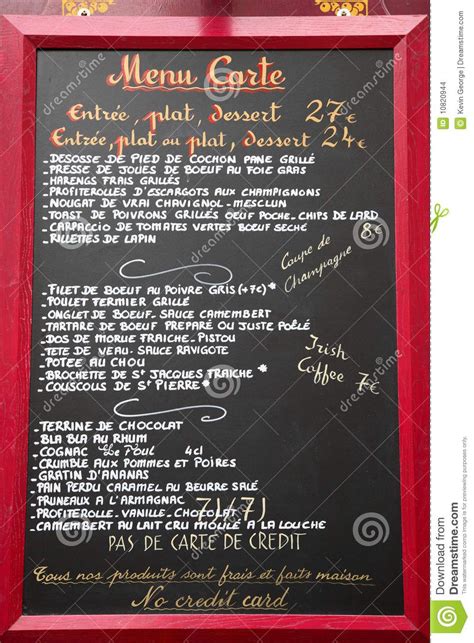 Menu Carte
Entrée, plat, dessert 27€
Entrée, plat ou plat, dessert 24€
_DESOSSE DE PIED DE COCHON PANE GRILLÉ
_PRESSE DE JOUES DE BOEUF AU FOIE GRAS
_HARENGS FRAIS GRILLÉS
_PROFITEROLLES D'ESCARGOTS AUX CHAMPIGNONS
_NOUGAT DE VRAI CHAVIGNOL-MESCLUN
_TOAST DE POIVRONS GRILLÉS OEUF POCHE-CHIPS DE LARD
_CARPACCIO DE TOMATES VERTES BOEUF SECHÉ
_RILLETTES DE LAPIN
8€
Coupe de
Champagne
_FILET DE BOEUF AU POIVRE GRIS (+7€)*
_POULET FERMIER GRILLÉ
_ONGLET DE BOEUF-SAUCE CAMEMBERT
_TARTARE DE BOEUF PREPARÉ OU JUSTE POÊLÉ
_DOS DE MORUE FRAICHE-PISTOU
_TETE DE VEAU-SAUCE RAVIGOTE
_POTEE AU CHOU
_BROCHETTE DE ST JACQUES FRAICHE*
_COUSCOUS DE ST PIERRE*
Irish
Coffee 7€
_TERRINE DE CHOCOLAT
_BLA BLA AU RHUM
_COGNAC 4cl
_CRUMBLE AUX POMMES ET POIRES
_GRATIN D'ANANAS
_PAIN PERDU CARAMEL AU BEURRE SALÉ
_PRUNEAUX A L'ARMAGNAC
_PROFITEROLLE-VANILLE-CHOCOLAT
_CAMEMBERT AU LAIT CRU MOULÉ A LA LOUCHE
PAS DE CARTE DE CREDIT
Tous nos produits sont frais et faits maison
No credit card
dreamstime.com
Download from
Dreamstime.com
This watermarked comp image is for previewing purposes only.
10820944
Kevin George | Dreamstime.com